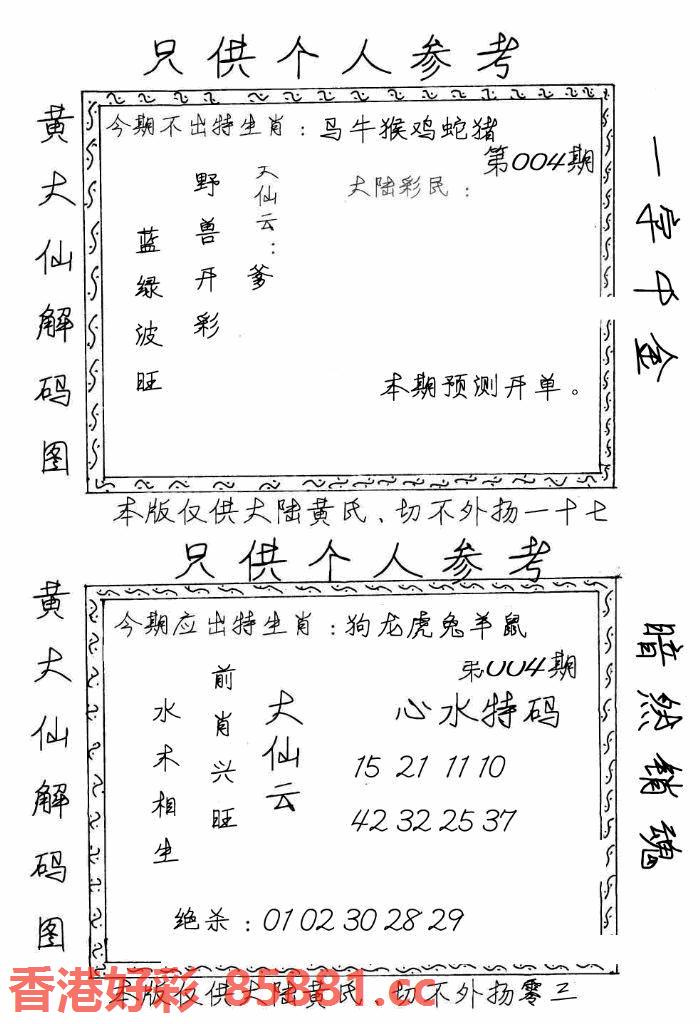 只供个人参考
黄大仙解码图
今期不出特生肖：马牛猴鸡蛇猪
第004期
大仙云：爹
野兽开彩
蓝绿波旺
大陆彩民：
本期预测开单。
一字中金
本版仅供大陆黄氏、切不外扬一十七
只供个人参考
黄大仙解码图
今期应出特生肖：狗龙虎兔羊鼠
第004期
大仙云
前肖兴旺
水木相生
心水特码
15 21 11 10
42 32 25 37
绝杀：01 02 30 28 29
暗然销魂
本版仅供大陆黄氏、切不外扬零三
香港好彩 85881.cc